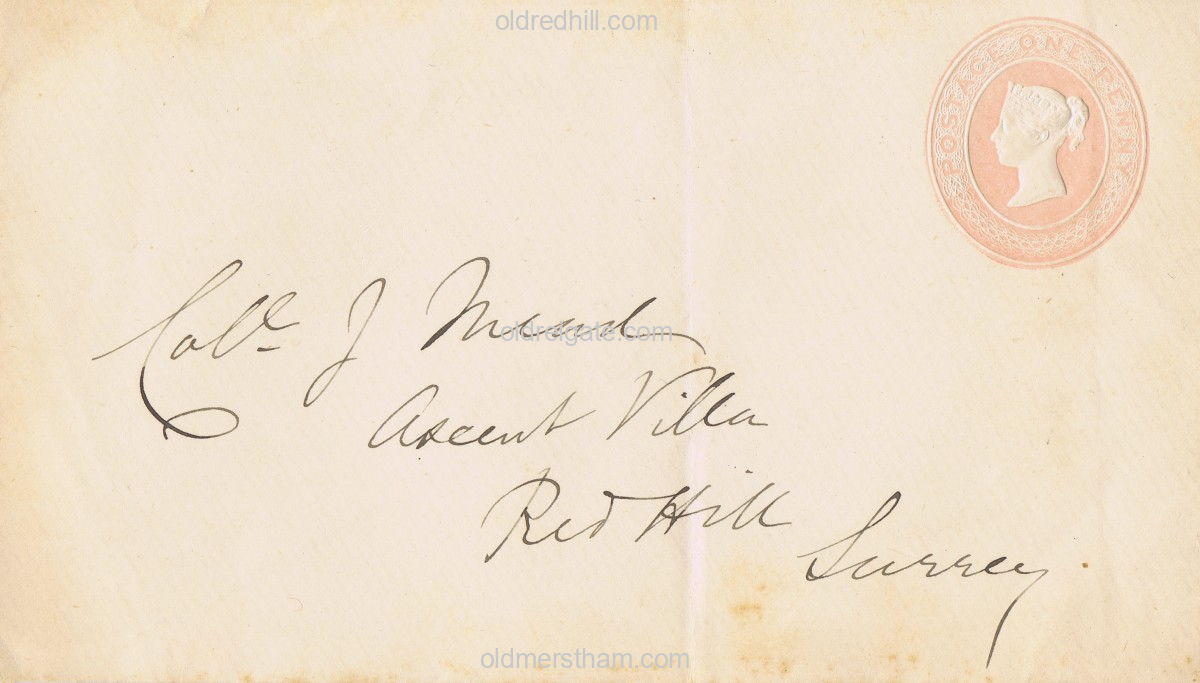 oldredhill.com
POSTAGE ONE PENNY
J
oldreigate.com
Ascent Villa
Red Hill
Surrey
oldmerstham.com